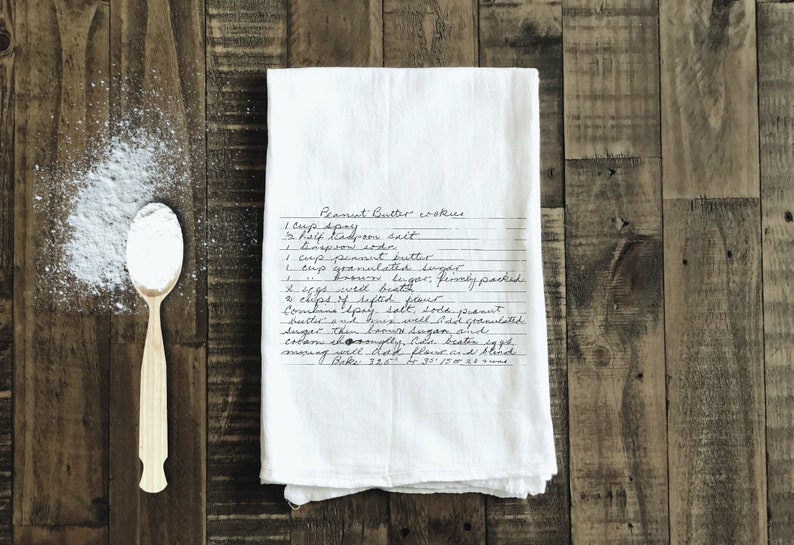 Peanut Butter cookies
1 cup spry
2 half teaspoon salt
1 teaspoon soda
1 cup peanut butter
1 cup granulated sugar
1 " brown sugar, firmly packed
2 eggs well beaten
2 cups of sifted flour
Combine spry, salt, soda, peanut
butter and mix well. Add granulated
sugar, then brown sugar and
cream thoroughly, Add beaten eggs,
mixing well. Add flour and blend
Bake 325° or 35° 15 or 20 mins